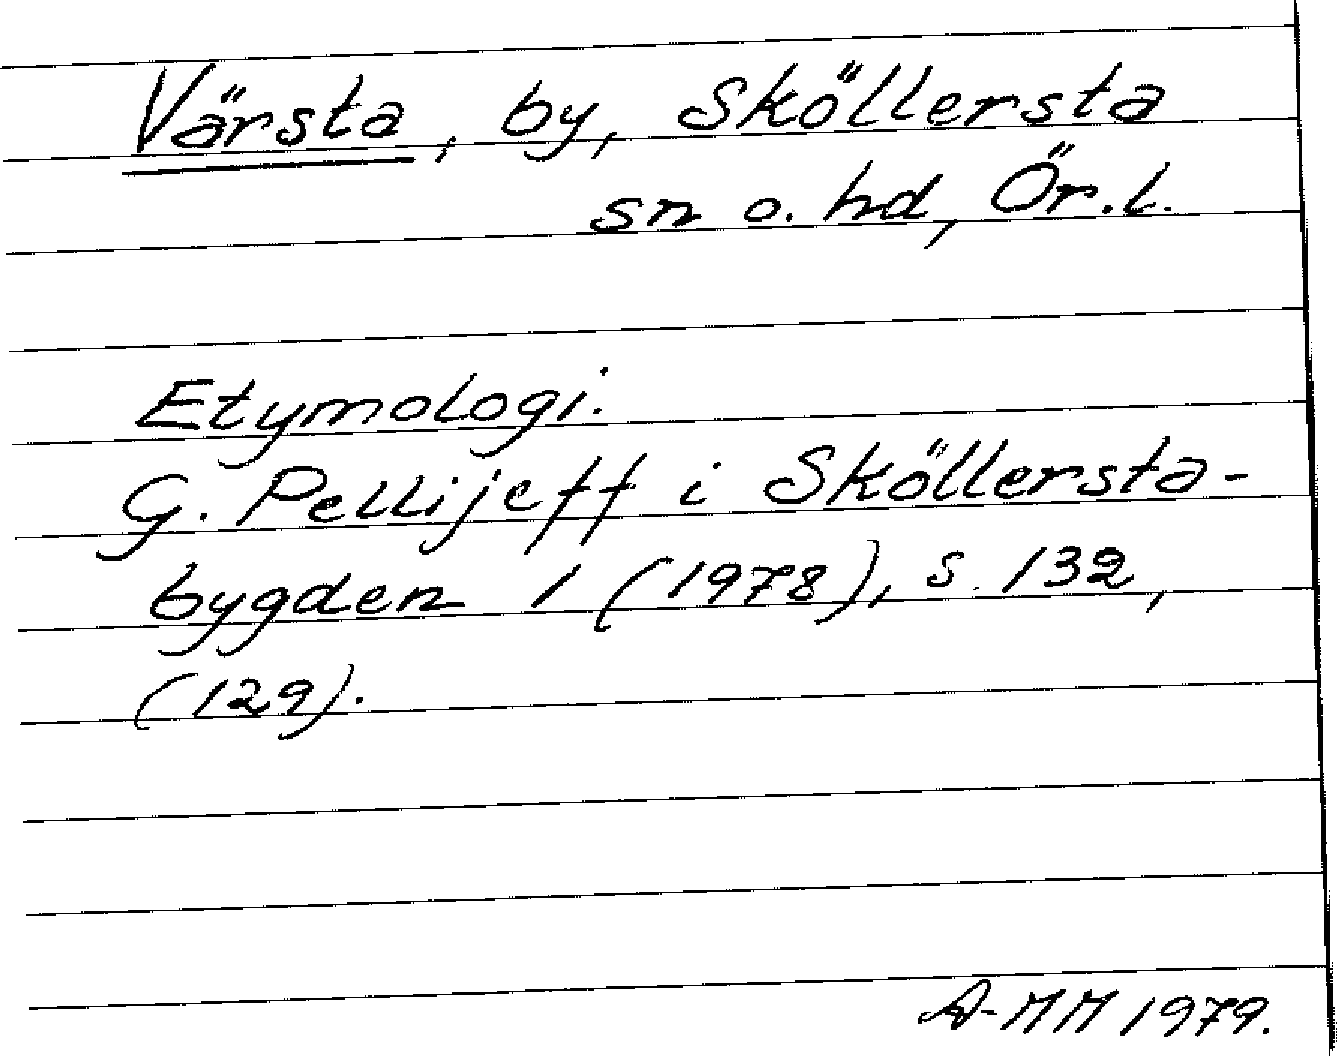 Värsta, by, Sköllersta
sn o. hd, Ör.l.
Etymologi.
G. Pellijeff i Sköllersta-
bygden 1 (1978), s. 132,
(129).
A-MM 1979.